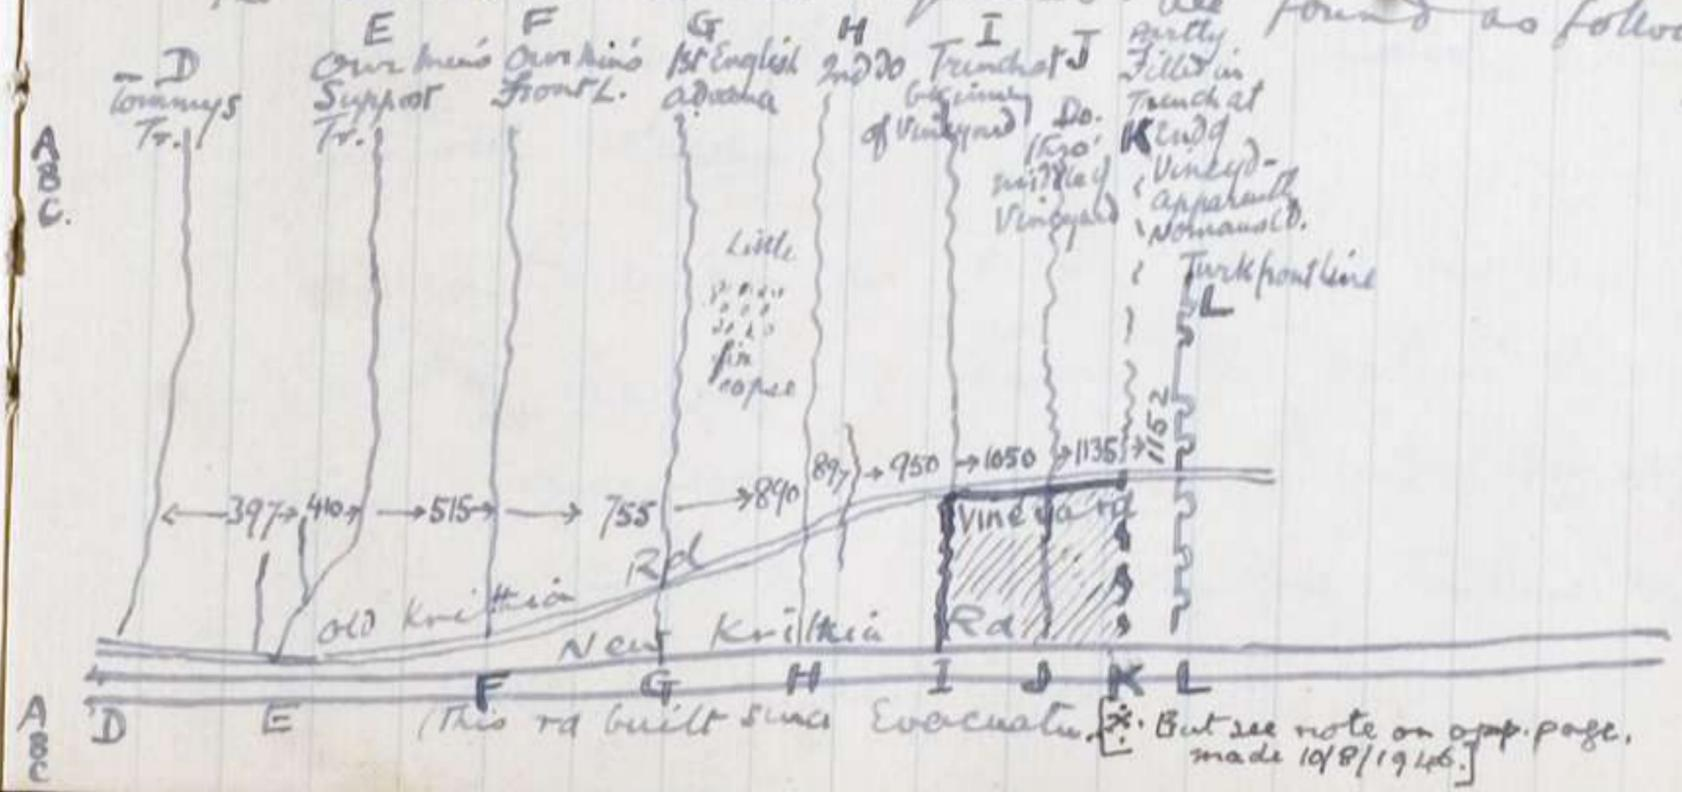 are found as follow
D
Tommys
Tr.
E
Our men's
Support
Tr.
F
Our men's
Front L.
G
1st English
advance
H
2nd Do
I
Trench at
beginning
of Vineyard
J
Do.
thro'
middle of
Vineyard
Partly
Filled in
Trench at
K end of
Vineyd-
apparently
Nomansld.
Turk front line
L
A
B
C.
Little
fir
copse
397 410 515 755 890 897 950 1050 1135 1152
Vineyard
Old Krithia Rd
New Krithia Rd
F G H I J K L
A
B
C
D E (This rd built since Evacuatn. [※. But see note on opp. page.
made 10/8/1946.]